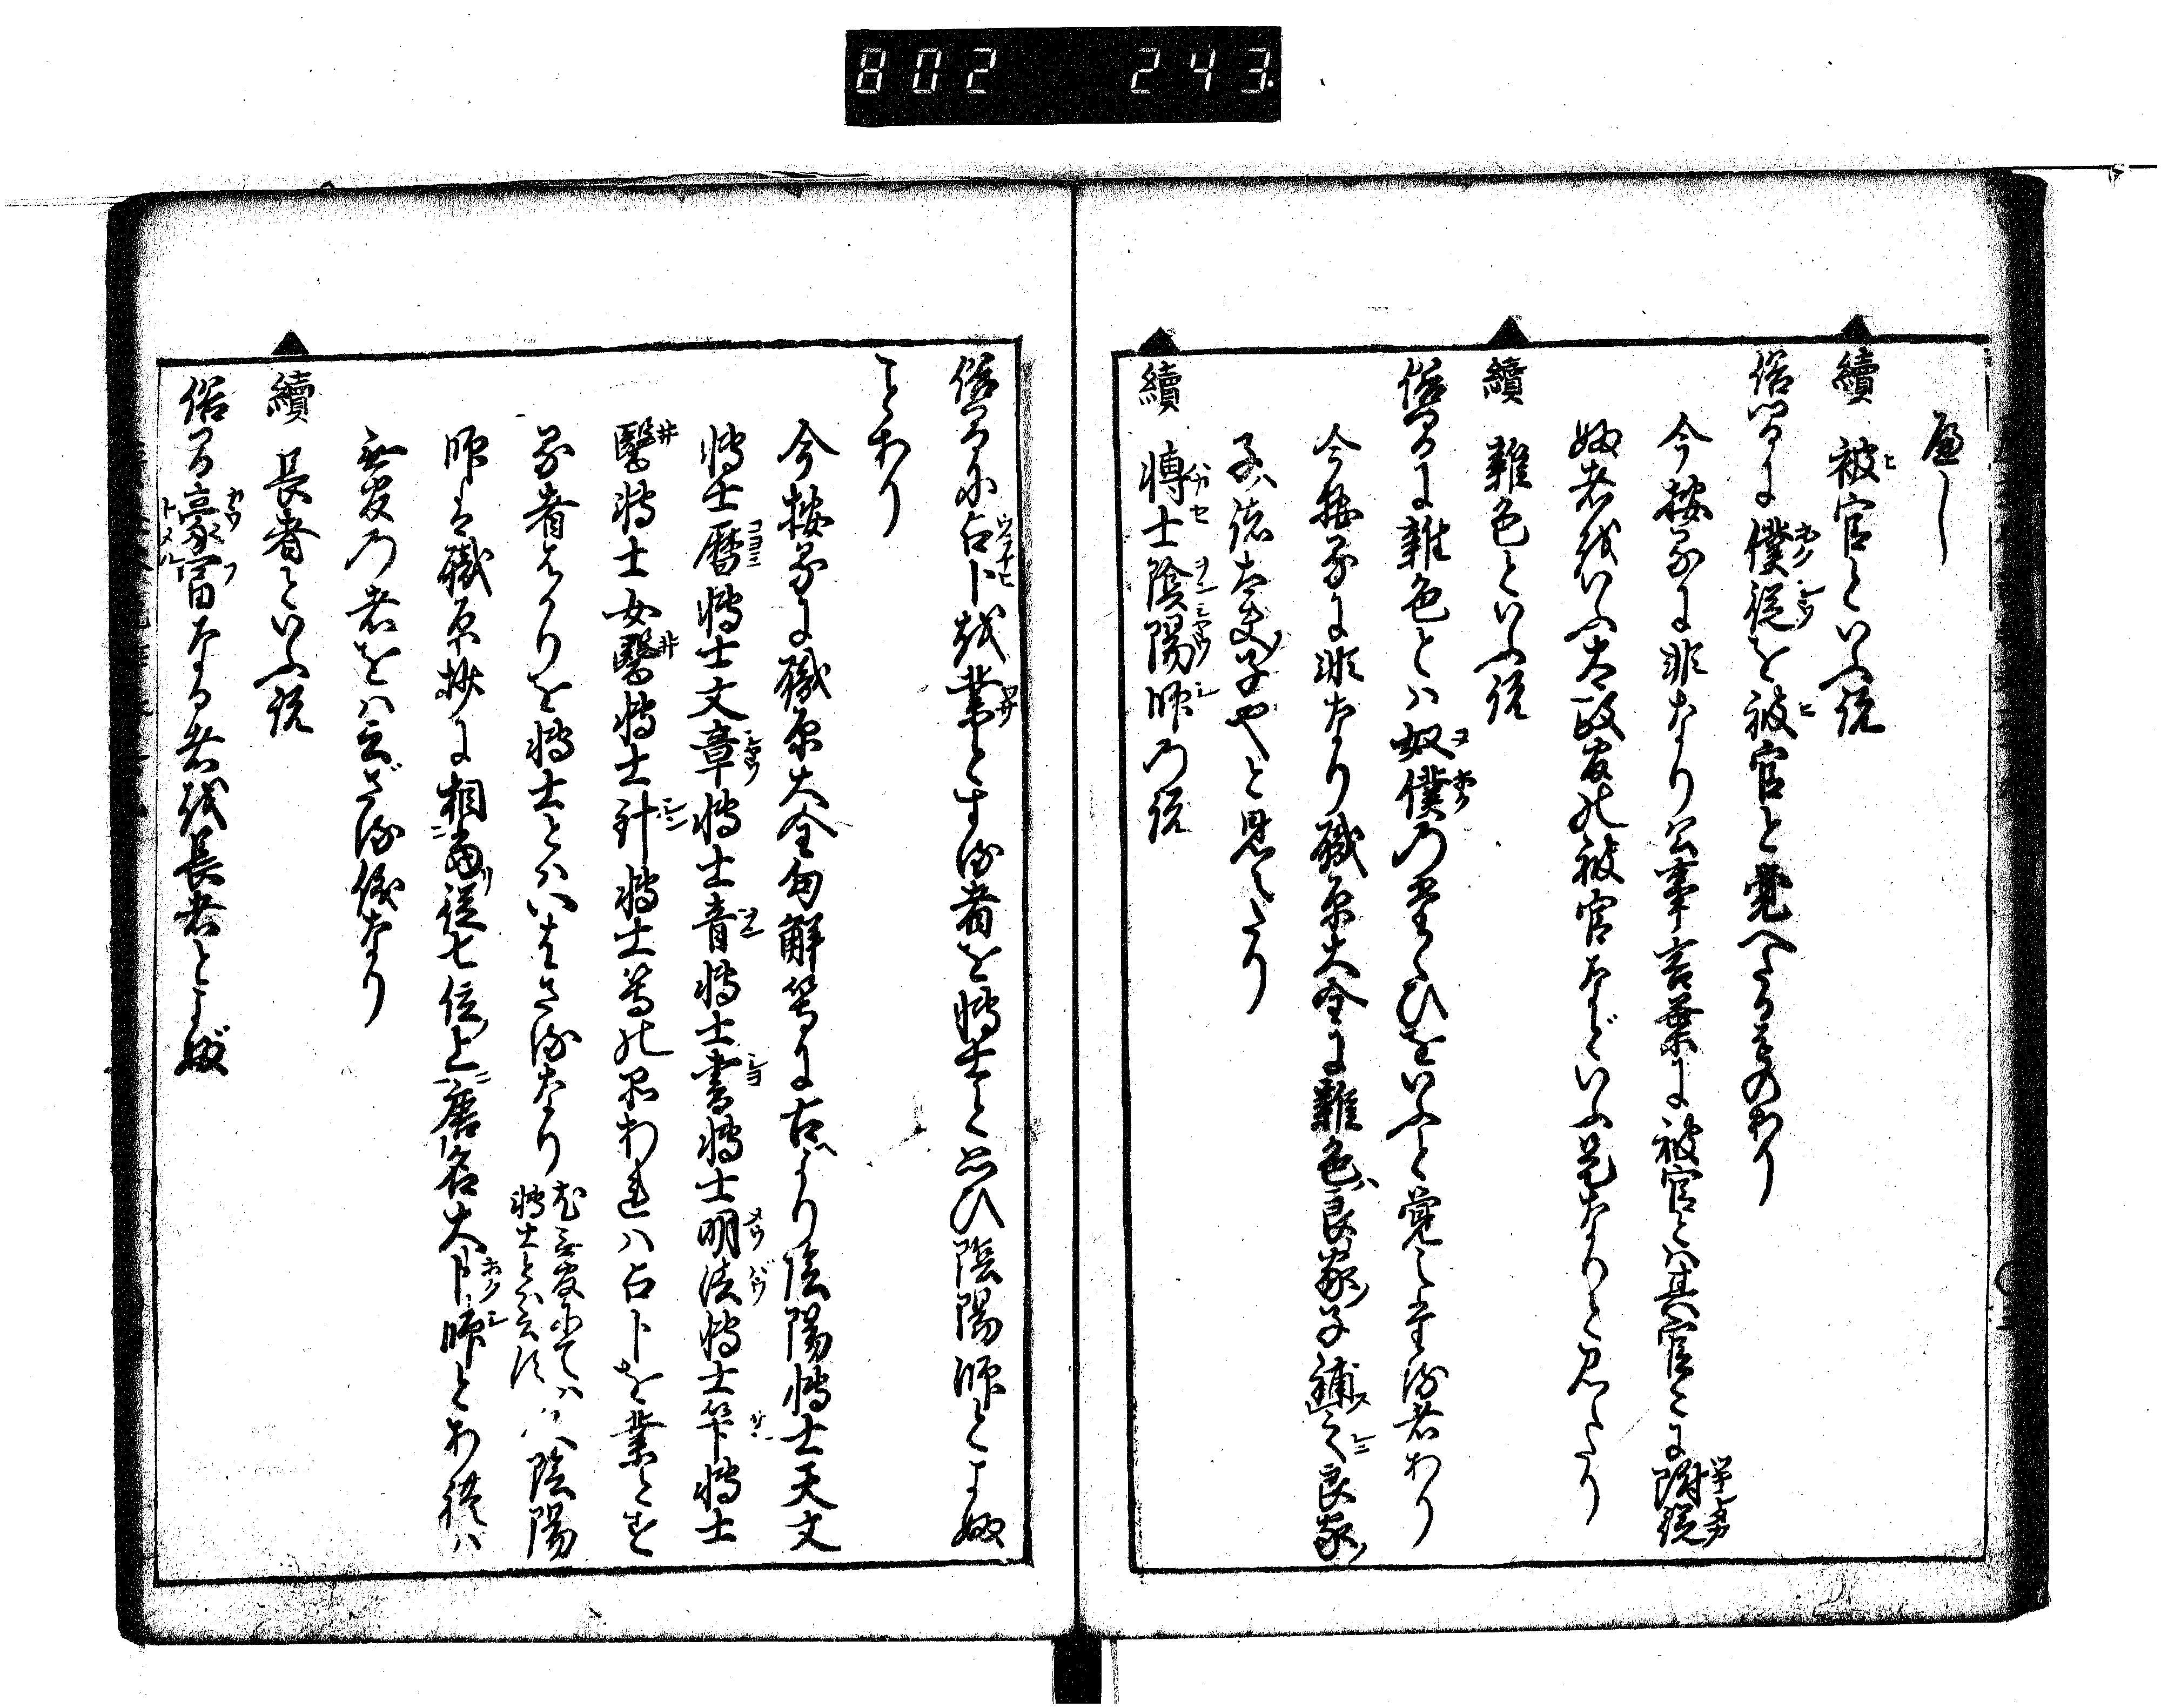 802 243
べし
續 被官といふ説
俗間に僕従を被官と覚へたるものあり
今按るに非なり公事言葉に被官とは其官々に附従
ぬ者をいふ太政官の被官などいふ是なりと見へたり
續 雑色といふ説
俗間に雑色とハ奴僕のたぐひをいふと覚へたる者あり
今按るに非なり職原大全に雑色ハ良家ノ子補ス之ニ良家ノ
子ハ諸太夫ノ子やと見へたり
續 博士陰陽師の説
俗間に占卜を業とする者を博士と云ひ陰陽師とよぶ
ことあり
今按るに職原大全句解等に古より陰陽博士天文
博士暦博士文章博士音博士書博士明法博士算博士
醫博士女醫博士針博士等の品あれハ占卜を業とす
る者ばかりを博士とハいはざるなり 尤無官にてハ博士とハ云ハず 陰陽
師は職原抄に相當従七位上ニ唐名大卜師とあれハ
無官の者をハ云ざる儀なり
續 長者といふ説
俗間豪富なる者を長者とよぶ